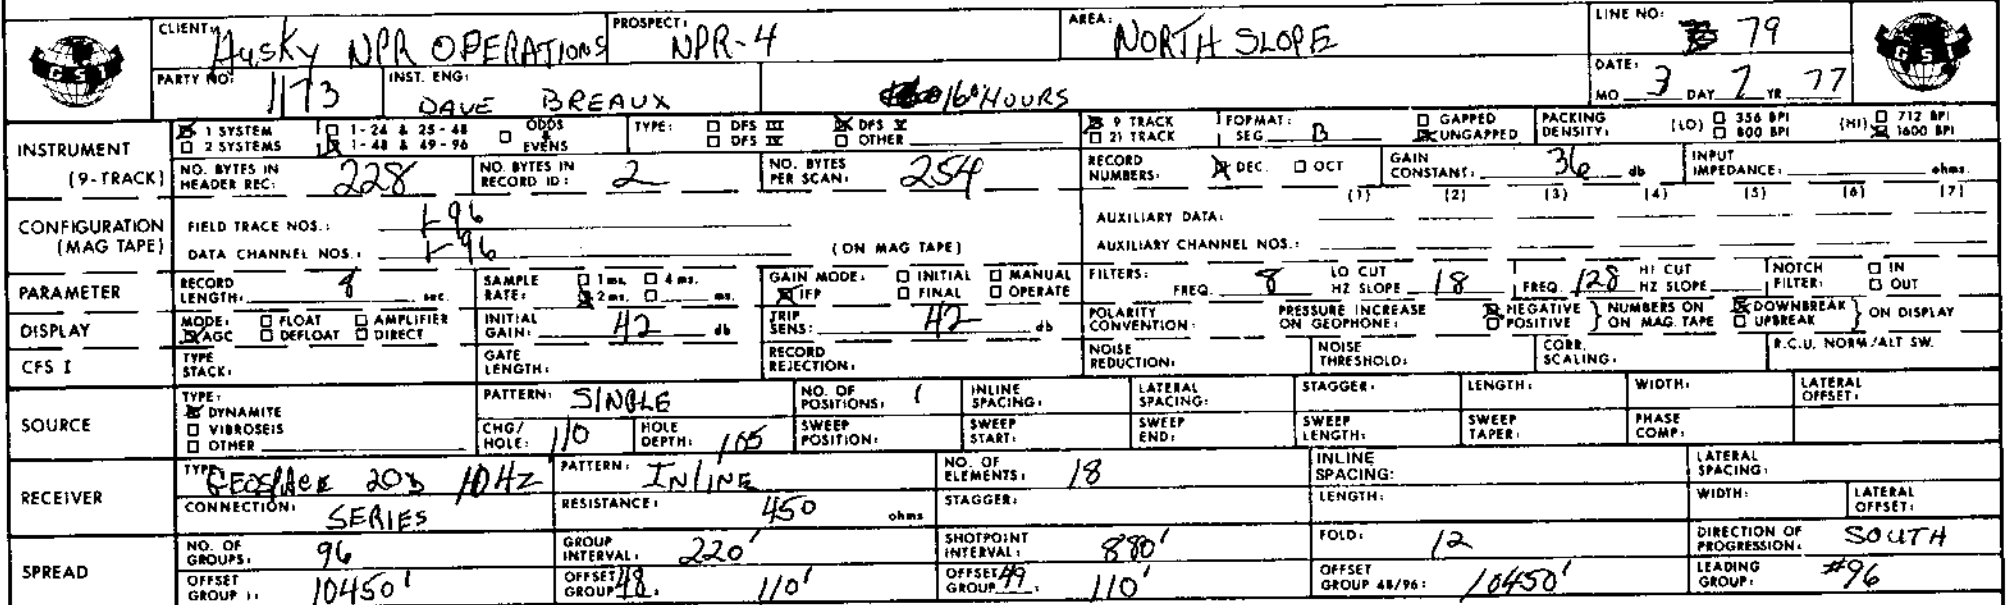 CLIENT: Husky NPR OPERATIONS PROSPECT: NPR-4 AREA: NORTH SLOPE LINE NO: 79
GSI GSI
PARTY NO: 1173 INST. ENG: DAVE BREAUX HOURS DATE: MO 3 DAY 7 YR 77
INSTRUMENT (9-TRACK) 1 SYSTEM 1-24 & 25-48 ODDS & EVENS TYPE: DFS III DFS V 9 TRACK FORMAT: SEG B GAPPED PACKING DENSITY: (LO) 356 BPI (HI) 712 BPI
2 SYSTEMS 1-48 & 49-96 DFS IV OTHER 21 TRACK UNGAPPED 800 BPI 1600 BPI
NO. BYTES IN HEADER REC: 228 NO. BYTES IN RECORD ID: 2 NO. BYTES PER SCAN: 254 RECORD NUMBERS: DEC. OCT GAIN CONSTANT: 36 db INPUT IMPEDANCE: ohms.
(1) (2) (3) (4) (5) (6) (7)
CONFIGURATION (MAG TAPE) FIELD TRACE NOS.: 1-96 AUXILIARY DATA:
DATA CHANNEL NOS.: 1-96 (ON MAG TAPE) AUXILIARY CHANNEL NOS.:
PARAMETER RECORD LENGTH: 8 sec. SAMPLE RATE: 1 ms. 4 ms. 2 ms. ms. GAIN MODE: INITIAL MANUAL IFP FINAL OPERATE FILTERS: FREQ. 8 LO CUT HZ SLOPE 18 FREQ. 128 HI CUT HZ SLOPE NOTCH FILTER: IN OUT
DISPLAY MODE: FLOAT AMPLIFIER AGC DEFLOAT DIRECT INITIAL GAIN: 42 db TRIP SENS: 42 db POLARITY CONVENTION: PRESSURE INCREASE ON GEOPHONE: NEGATIVE POSITIVE NUMBERS ON ON MAG. TAPE DOWNBREAK UPBREAK ON DISPLAY
CFS I TYPE STACK: GATE LENGTH: RECORD REJECTION: NOISE REDUCTION: NOISE THRESHOLD: CORR. SCALING: R.C.U. NORM/ALT SW.
SOURCE TYPE: DYNAMITE VIBROSEIS OTHER PATTERN: SINGLE NO. OF POSITIONS: 1 INLINE SPACING: LATERAL SPACING: STAGGER: LENGTH: WIDTH: LATERAL OFFSET:
CHG/HOLE: 110 HOLE DEPTH: 105 SWEEP POSITION: SWEEP START: SWEEP END: SWEEP LENGTH: SWEEP TAPER: PHASE COMP:
RECEIVER TYPE: GEOSPACE 20D 10HZ PATTERN: INLINE NO. OF ELEMENTS: 18 INLINE SPACING: LATERAL SPACING:
CONNECTION: SERIES RESISTANCE: 450 ohms STAGGER: LENGTH: WIDTH: LATERAL OFFSET:
SPREAD NO. OF GROUPS: 96 GROUP INTERVAL: 220' SHOTPOINT INTERVAL: 880' FOLD: 12 DIRECTION OF PROGRESSION: SOUTH
OFFSET GROUP 1: 10450' OFFSET GROUP 48: 110' OFFSET GROUP 49: 110' OFFSET GROUP 48/96: 10450' LEADING GROUP: #96